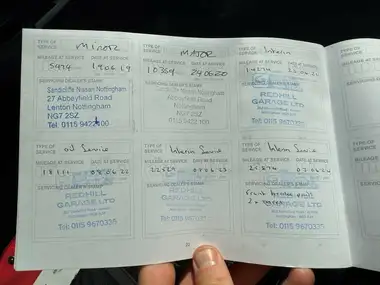 TYPE OF SERVICE MINOR
MILEAGE AT SERVICE DATE AT SERVICE
5974 19.06.19
SERVICING DEALER'S STAMP
Sandicliffe Nissan Nottingham
27 Abbeyfield Road
Lenton Nottingham
NG7 2SZ
Tel: 0115 9422100
TYPE OF SERVICE MAJOR
MILEAGE AT SERVICE DATE AT SERVICE
10364 29.06.20
Sandicliffe Nissan Nottingham
27 Abbeyfield Road
Nottingham
NG7 2SZ
TYPE OF SERVICE Interim
MILEAGE AT SERVICE DATE AT SERVICE
SERVICING DEALER'S STAMP
REDHILL
GARAGE LTD
Tel: 0115 9670335
TYPE OF SERVICE Oil Service
MILEAGE AT SERVICE DATE AT SERVICE
18111 08.06.22
SERVICING DEALER'S STAMP
REDHILL
GARAGE LTD
Tel: 0115 9670335
TYPE OF SERVICE Interim Service
MILEAGE AT SERVICE DATE AT SERVICE
22529
SERVICING DEALER'S STAMP
REDHILL
GARAGE LTD
Tel: 0115 9670335
TYPE OF SERVICE Interim Service
MILEAGE AT SERVICE DATE AT SERVICE
07.06.24
SERVICING DEALER'S STAMP
front
GARAGE LTD
Tel: 0115 9670335